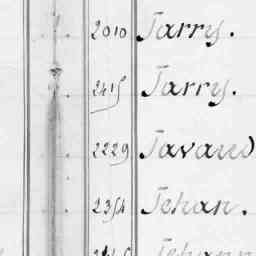 2010 Jarry.
2415 Jarry.
2229 Javaud
2354 Jehan.